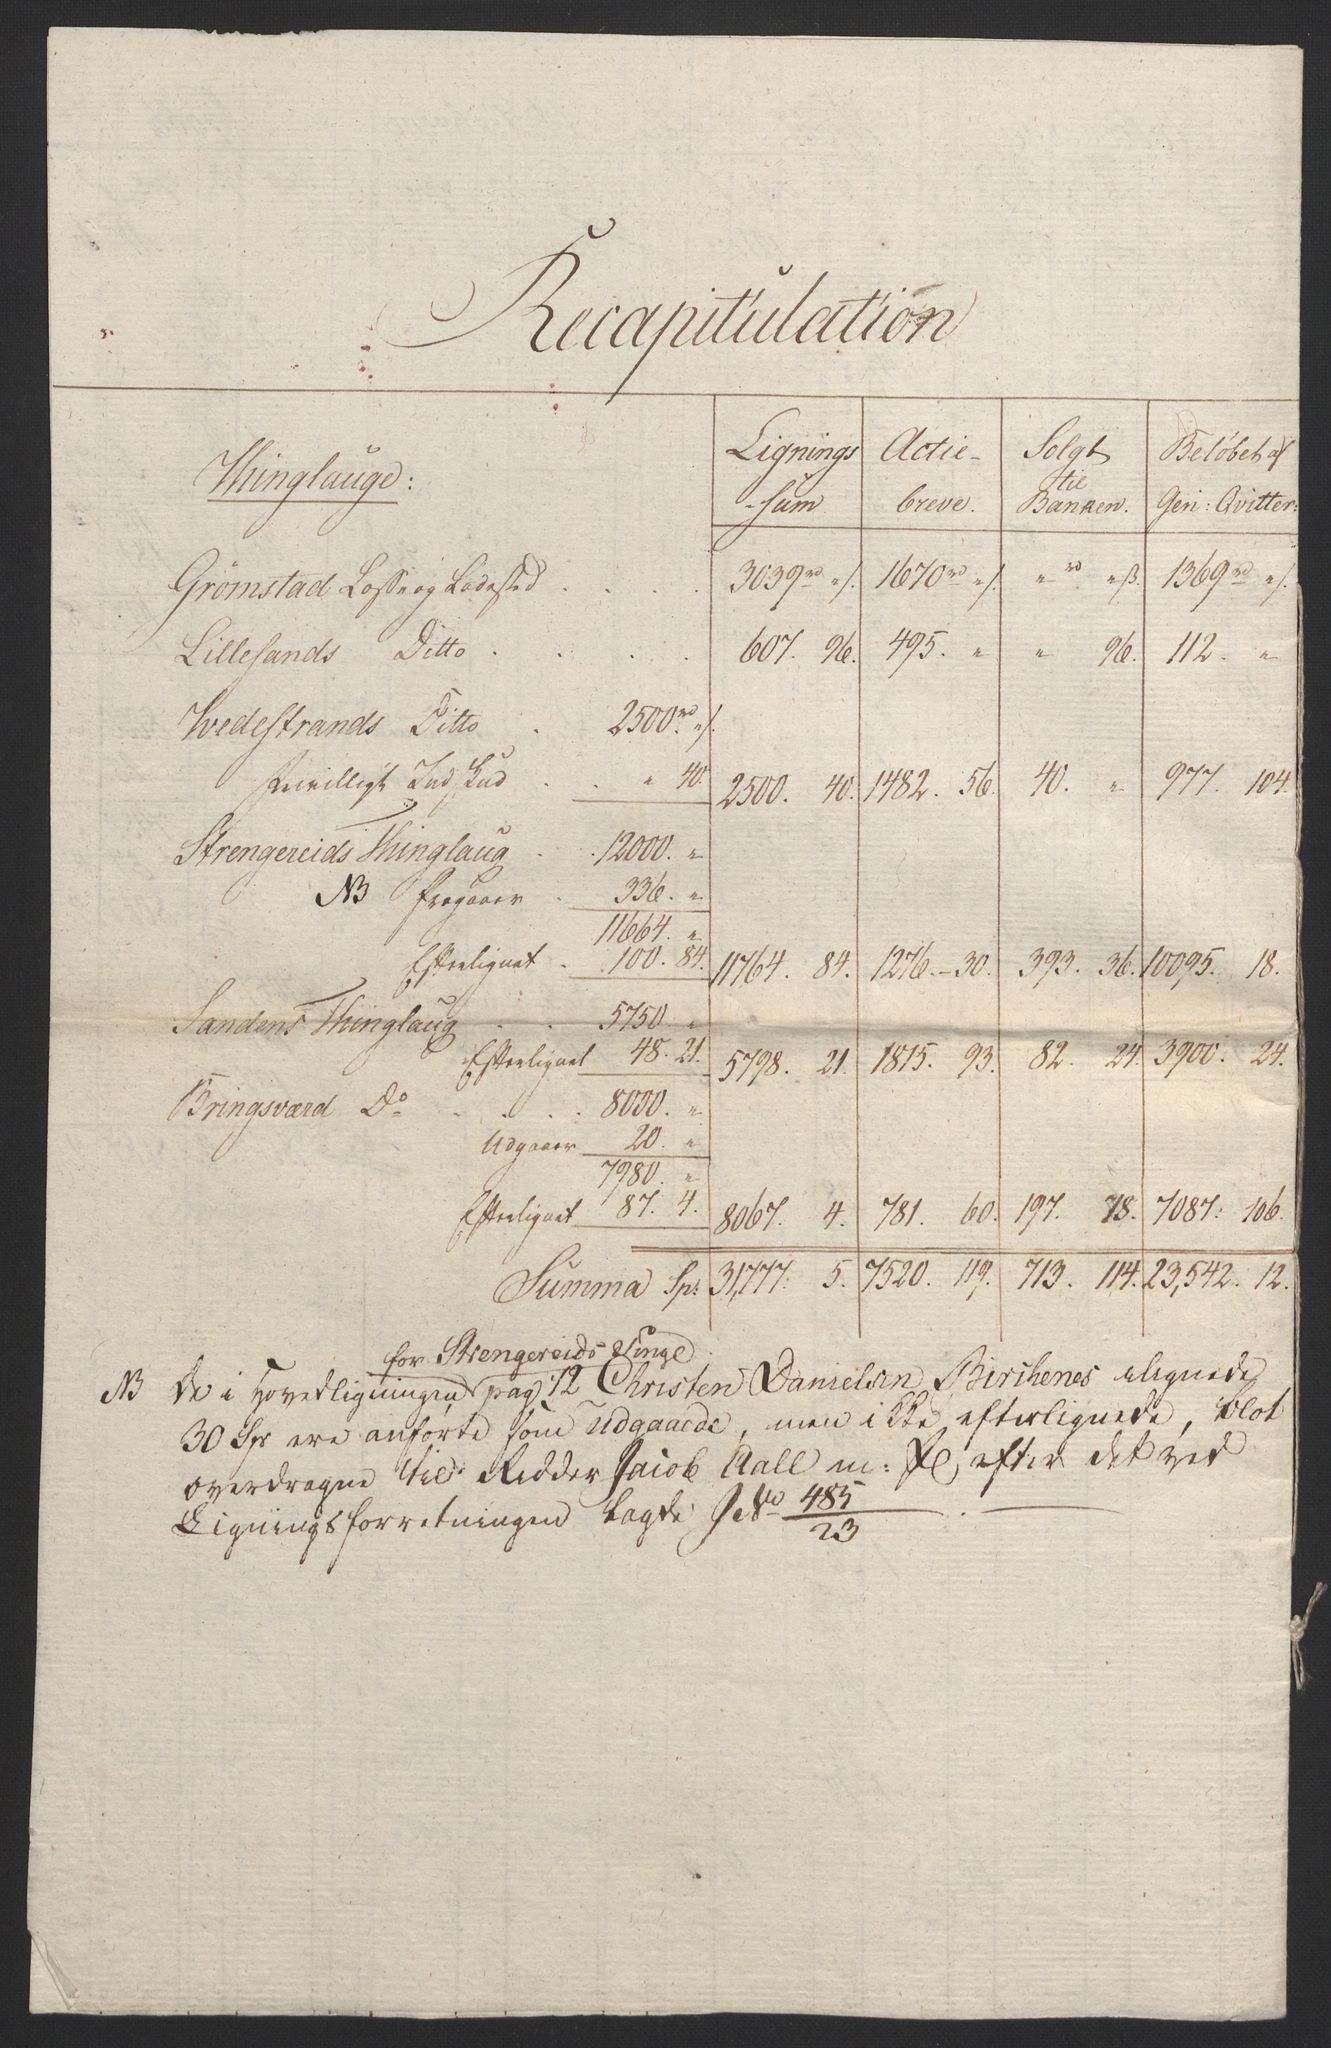 Recapitulation
Thinglauge: Lignings Actie- Solgt Beløbet af
-sum breve. til Banken. Gen: Qvitter:
Grømstad Losse og Ladested . . . . 3039 rd " s. 1670 rd " s. " rd " s. 1369 rd " s.
Lillesands Ditto . . . . 607. 96. 495. " " 96. 112. "
Twedestrands Ditto . 2500 rd " s.
frivilligt Indskud . . " 40. 2500. 40. 1482. 56. 40. " 977. 104.
Strengereids Thinglaug . . 12000. "
NB fragaaer . 336. "
11664. "
Efterlignet . 100. 84. 11764. 84. 1276. - 30. 393. 36. 10095. 18.
Sandens Thinglaug . . 5750 "
Efterlignet 48. 21. 5798. 21. 1815. 93. 82. 24. 3900. 24.
Bringsværd Do . . . . 8000. "
Udgaaer 20. "
7980. "
Efterlignet 87. 4. 8067. 4. 781. 60. 197. 78. 7087. 106.
Summa Sp: 31,777. 5. 7520. 119. 713. 114. 23,542. 12.
for Strengereids Tinge
NB De i Hovedligningen pag: 12 Christen Danielsen Birchenes ilignede
30 Spr ere anførte som Udgaaede, men ikke efterlignede, blot
overdragne til Ridder Jacob Aall efter det ved
Ligningsforretningen lagte 485
23